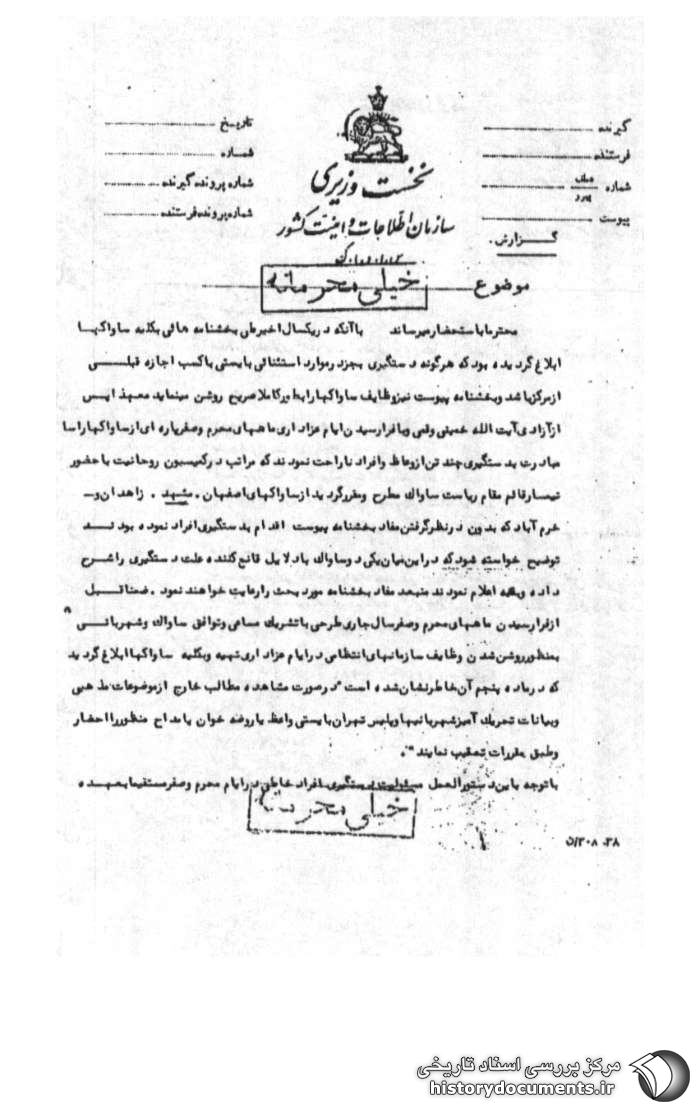 گیرنده
فرستنده
شماره عطف پیرو
پیوست
گزارش.
تاریخ
شماره
شماره پرونده گیرنده
شماره پرونده فرستنده
نخست وزیری
سازمان اطلاعات و امنیت کشور
موضوع
خیلی محرمانه
محترما باستحضار میرساند باآنکه در یکسال اخیر طی بخشنامه هائی بکلیه ساواکها
ابلاغ گردیده بود که هرگونه دستگیری بجز در موارد استثنائی بایستی با کسب اجازه قبلی
از مرکز باشد و بخشنامه پیوست نیز وظایف ساواکها را بطور کاملا صریح روشن مینماید معهذا پس
از آزادی آیت الله خمینی و قمی و با فرا رسیدن ایام عزاداری ماههای محرم و صفر پاره ای از ساواکها راسا
مبادرت بدستگیری چند تن از وعاظ و افراد ناراحت نمودند که مراتب در کمیسیون روحانیت با حضور
تیمسار قائم مقام ریاست ساواک مطرح و مقرر گردید از ساواکهای اصفهان . مشهد . زاهدان و
خرم آباد که بدون در نظر گرفتن مفاد بخشنامه پیوست اقدام بدستگیری افراد نموده بودند
توضیح خواسته شود که در این میان یکی دو ساواک با دلایل قانع کننده علت دستگیری را شرح
داده و بقیه اعلام نمودند منبعد مفاد بخشنامه مورد بحث را رعایت خواهند نمود . ضمنا قبل
از فرا رسیدن ماههای محرم و صفر سال جاری طرحی با تشریک مساعی و توافق ساواک و شهربانی
بمنظور روشن شدن وظایف سازمانهای انتظامی در ایام عزاداری تهیه و بکلیه ساواکها ابلاغ گردید
که در ماده پنجم آن خاطرنشان شده است "در صورت مشاهده مطالب خارج از موضوعات مذهبی
و بیانات تحریک آمیز شهربانیها و پلیس تهران بایستی واعظ یا روضه خوان یا مداح منظور را احضار
و طبق مقررات تعقیب نمایند".
با توجه باین دستورالعمل مسئولیت دستگیری افراد خاطی در ایام محرم و صفر مستقیما بعهده
خیلی محرمانه
مرکز بررسی اسناد تاریخی
historydocuments.ir